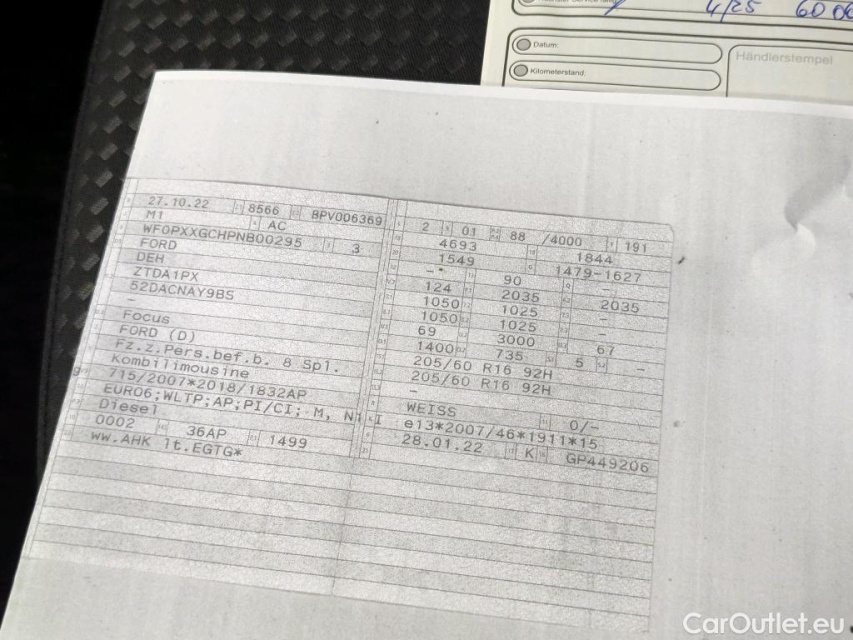 4/25 60 00
Datum:
Kilometerstand:
Händlerstempel
27.10.22 8566 BPV006369
M1 AC
WF0PXXGCHPNB00295 3
FORD
DEH
ZTDA1PX
52DACNAY9BS
–
Focus
FORD (D)
Fz.z.Pers.bef.b. 8 Spl.
Kombilimousine
715/2007*2018/1832AP
EURO6;WLTP;AP;PI/CI; M, N1 I
Diesel
0002 36AP 1499
ww.AHK lt.EGTG*
2 01 88 /4000 191
4693 1844
1549 1479-1627
– 90 –
124 2035 2035
1050 1025 –
1050 1025 –
69 3000 67
1400 735 5 –
205/60 R16 92H
205/60 R16 92H
–
WEISS 0/-
e13*2007/46*1911*15
28.01.22 K GP449206
CarOutlet.eu